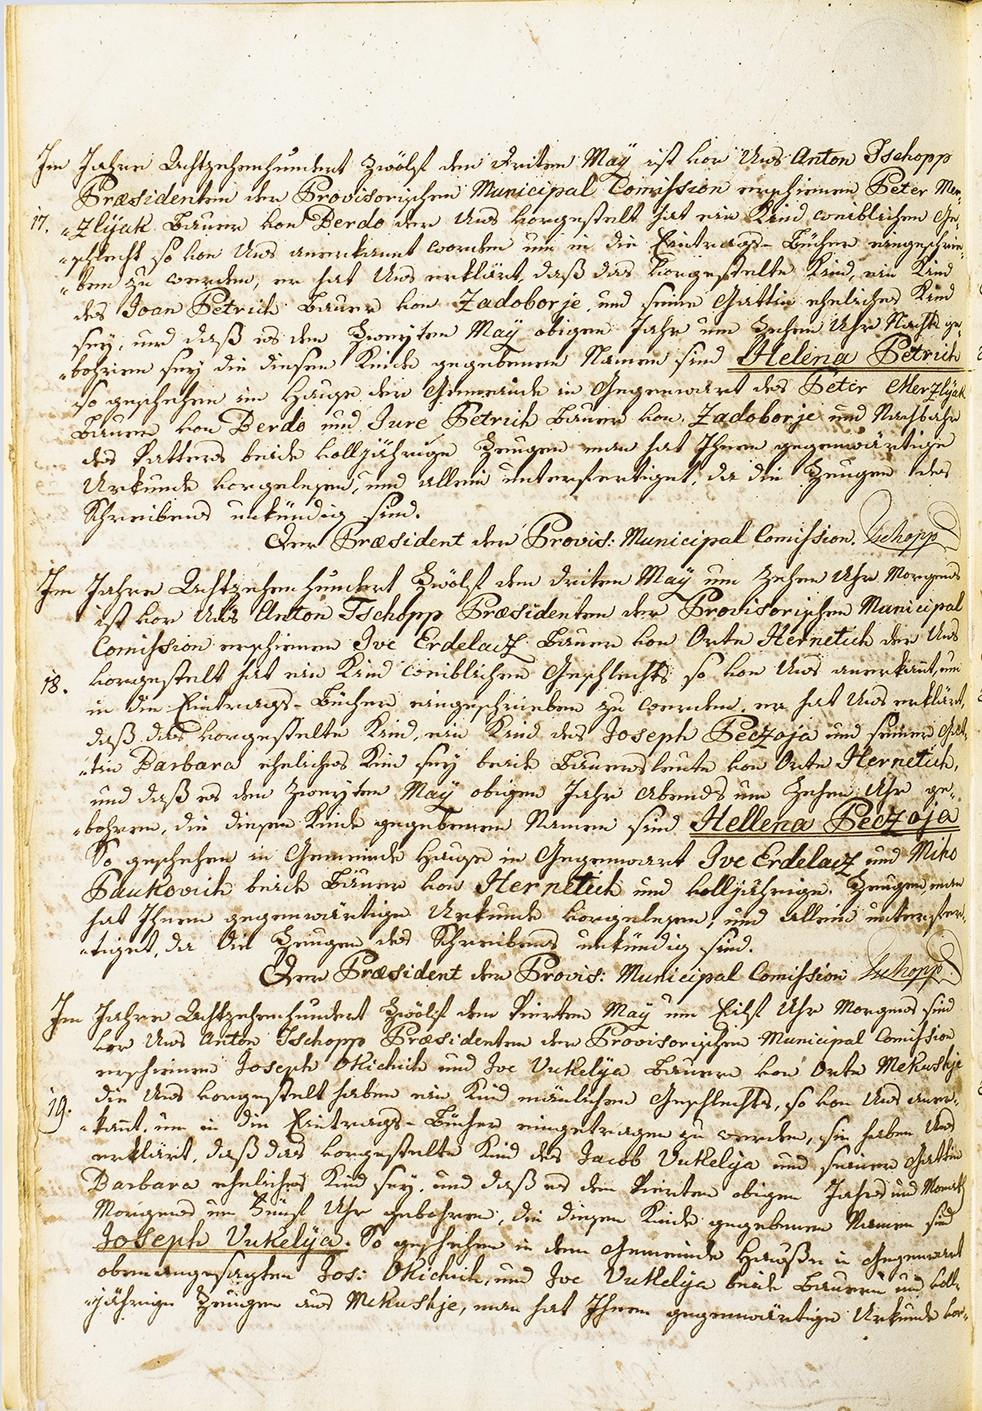 Im Jahre Achtzehenhundert Zwölf den driten Maÿ ist vor Uns Anton Tschopp
Præsidenten der Provisorischen Municipal Comission erschienen Peter Mer-
17. -zlÿak Bauer von Berdo der Uns vorgestelt hat ein Kind weiblichen Ge-
-schlecht so von Uns anerkannt worden um in die Eintrags-Bücher eingeschrie-
-ben zu werden, er hat Uns erklärt, daß das Vorgestelte Kind, ein Kind
des Joan Petrich Bauer von Zadoborje, und seine Gattin eheliches Kind
sey, und daß es den Zweyten Maÿ obigen Jahr um Zehen Uhr Nachts ge-
-bohren sey die diesen Kinde gegebenen Namen sind Helena Petrich
so geschehen im Hause der Gemeinde in Gegenwart des Peter Merzlÿak
Bauer von Berdo und Jure Petrich Bauer von Zadoborje und Nachbahr
des Vatters beide volljährige Zeugen man hat Ihnen gegenwärtige
Urkunde vorgelesen, und allein unterfertiget, da die Zeugen des
Schreibens unkündig sind.
Der Præsident der Provis: Municipal Comission. Tschopp
Im Jahre Achtzehen hundert Zwölf den driten Maÿ um Zehen Uhr Morgens
ist vor Uns Anton Tschopp Præsidenten der Provisorischen Municipal
Comission erschienen Ive Erdelacz Bauer von Orte Hernetich der Uns
18. vorgestelt hat ein Kind weiblichen Geschlechts so von Uns anerkannt, um
in die Eintrags-Bücher eingeschrieben zu werden, er hat Uns erklärt,
daß das vorgestelte Kind, ein Kind des Joseph Peczoja und seiner Gat-
-tin Barbara eheliches Kind sey beide Bauersleute von Orte Hernetich,
und daß es den Zweyten Maÿ obigen Jahr Abends um Zehen Uhr ge-
-bohren, die diesen Kinde gegebenen Namen sind Hellena Peczoja
So geschehen in Gemeinde Hause in Gegenwart Ive Erdelacz und Miko
Paukovich beide Bäuer von Hernetich und volljährige Zeugen man
hat Ihnen gegenwärtige Urkunde vorgelesen, und allein unterfer-
-tiget, da die Zeugen des Schreibens unkündig sind.
Der Præsident der Provis: Municipal Comission Tschopp
Im Jahre Achtzehenhundert Zwölf den Vierten Maÿ um Eilf Uhr Morgens sind
vor Uns Anton Tschopp Præsidenten der Provisorischen Municipal Comission
erschienen Joseph Okichich und Ive Vukelÿa Bauern von Orte Mekushje
19. die Uns vorgestelt haben ein Kind mänlichen Geschlechts, so von Uns aner-
-kant, um in die Eintrags-Bücher eingetragen zu werden, sie haben Uns
erklärt, daß das vorgestelte Kind des Jacob Vukelÿa und seiner Gattin
Barbara eheliches Kind sey, und daß es den Vierten obigen Jahrs und Monats
Morgens um Fünf Uhr gebohren, die diesen Kinde gegebenen Namen sind
Joseph Vukelÿa. So geschehen in dem Gemeinde Hauße in Gegenwart
obenangesagten Jos: Okichich, und Ive Vukelija beide Bauern und voll-
-jährige Zeugen aus Mekushje, man hat Ihnen gegenwärtige Urkunde vor-